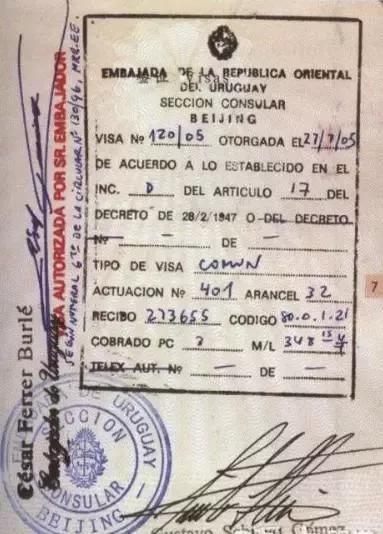 Visas
EMBAJADA DE LA REPUBLICA ORIENTAL
DEL URUGUAY
SECCION CONSULAR
BEIJING
VISA Nº 120/05 OTORGADA EL 27/7/05
DE ACUERDO A LO ESTABLECIDO EN EL
INC. D DEL ARTICULO 17 DEL
DECRETO DE 28/2/1947 O DEL DECRETO
Nº — DE —
TIPO DE VISA COMUN
ACTUACION Nº 401 ARANCEL 32
RECIBO 273655 CODIGO 80.0.1.21
COBRADO PC 2 M/L 348
TELEX AUT. Nº — DE —
7
VISA AUTORIZADA POR SR. EMBAJADOR
SEGUN NUMERAL 6 DE LA CIRCULAR Nº 130/96, MRR.EE.
César Ferrer Burlé
de Uruguay
DE URUGUAY
SECCION
CONSULAR
BEIJING
Gustavo